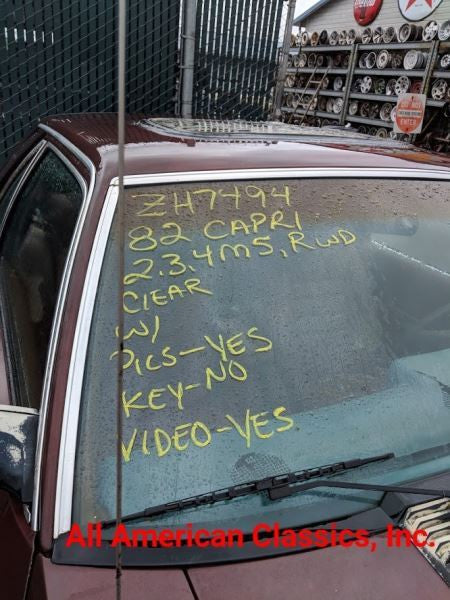 ZH7494
82 CAPRI
2.3, 4M5, RWD
CLEAR
W/
PICS-YES
KEY-NO
VIDEO-YES
All American Classics, Inc.